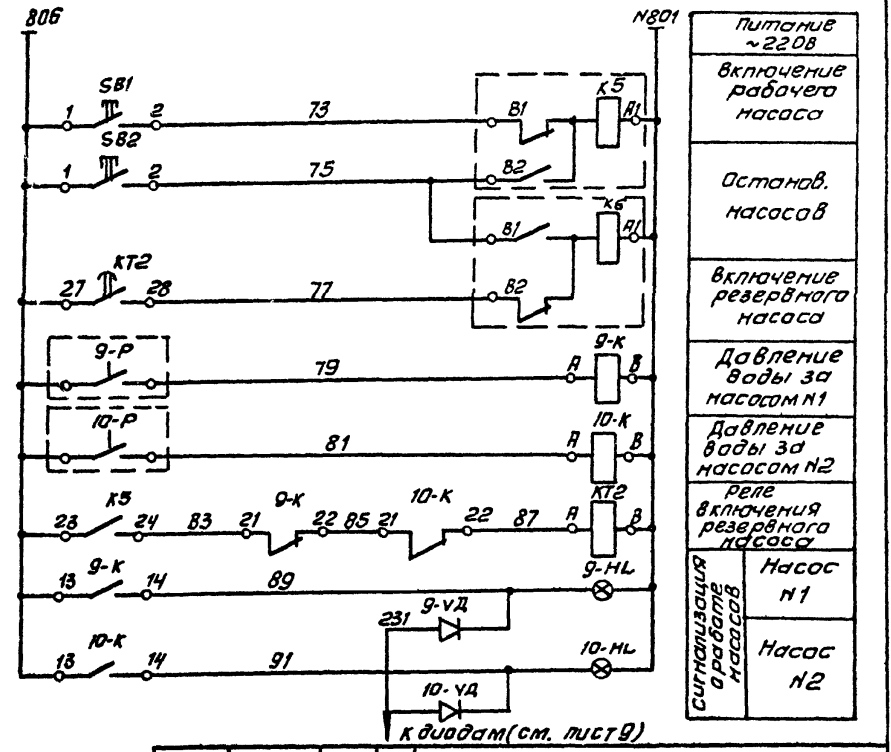 806
N801
SB1
1
2
73
B1
K5
A1
SB2
1
2
75
B2
B1
K6
A1
KT2
27
28
77
B2
9-P
79
A
9-K
B
10-P
81
A
10-K
B
K5
23
24
83
21
9-K
22
85
21
10-K
22
87
A
KT2
B
9-K
13
14
89
9-HL
231
9-VД
10-K
13
14
91
10-HL
10-VД
к диодам (см. лист 9)
Питание
~220В
Включение
рабочего
насоса
Останов.
насосов
Включение
резервного
насоса
Давление
воды за
насосом N1
Давление
воды за
насосом N2
Реле
включения
резервного
насоса
Сигнализация
о работе
насосов
Насос
N1
Насос
N2